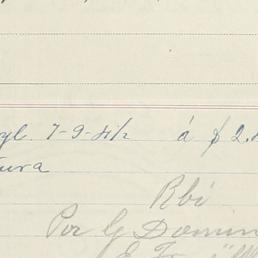 yl. 7-9-41/2 á $ 2.
tura
Rbi
Por G Domin